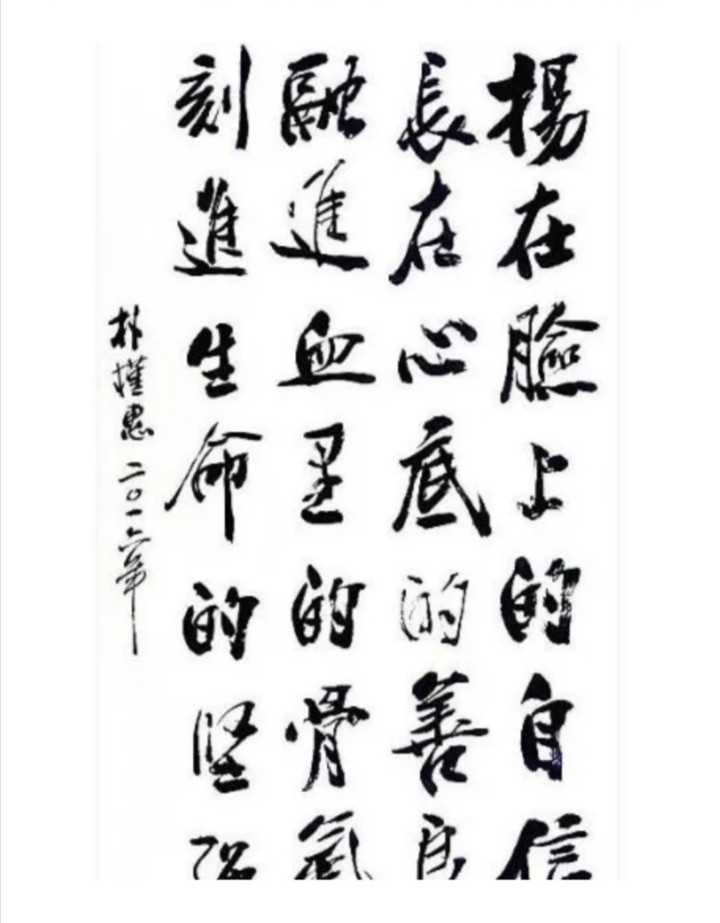 揚在臉上的自信
長在心底的善良
融進血里的骨氣
刻進生命的堅强
朴槿惠 二〇一六年